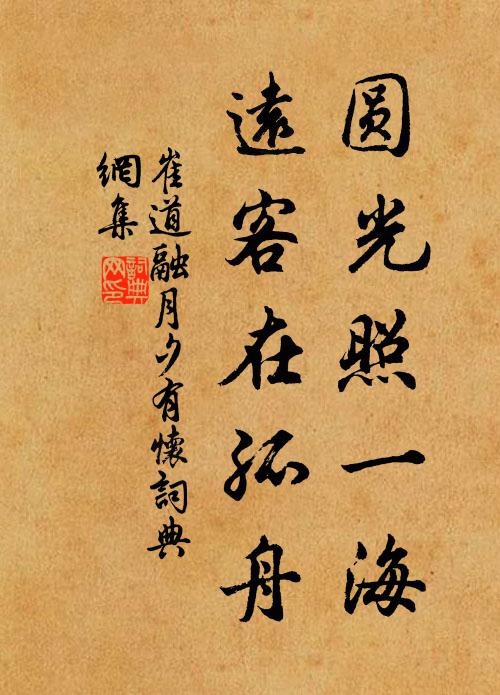 圓光照一海
遠客在孤舟
崔道融月夕有懷詞典
網集
詞典
网印